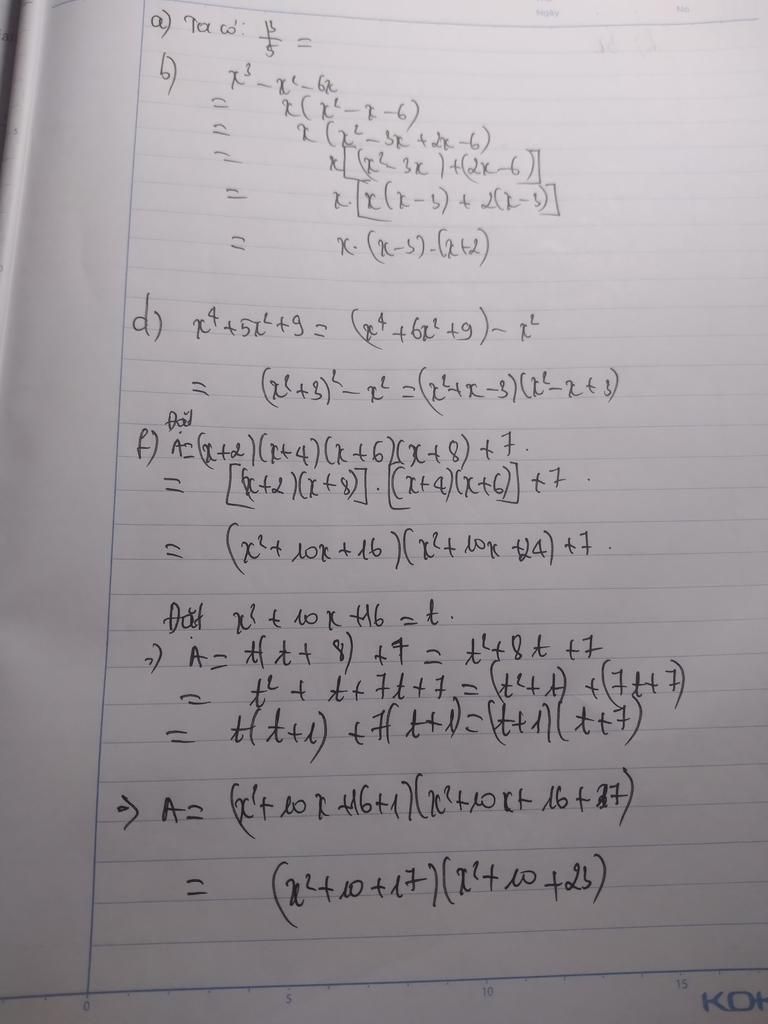 Ngày No
a) Ta có: =
b) x³ - x² - 6x
= x(x² - x - 6)
= x(x² - 3x + 2x - 6)
= x[(x² - 3x) + (2x - 6)]
= x.[x(x - 3) + 2(x - 3)]
= x.(x-3).(x+2)
d) x⁴ + 5x² + 9 = (x⁴ + 6x² + 9) - x²
= (x² + 3)² - x² = (x² + x - 3)(x² - x + 3)
Đặt
f) A = (x+2)(x+4)(x+6)(x+8) + 7.
= [(x+2)(x+8)].[(x+4)(x+6)] + 7.
= (x² + 10x + 16)(x² + 10x + 24) + 7.
Đặt x² + 10x + 16 = t.
=> A = t(t + 8) + 7 = t² + 8t + 7
= t² + t + 7t + 7 = (t² + 1) + (7t + 7)
= t(t + 1) + 7(t + 1) = (t + 1)(t + 7)
=> A = (x² + 10x + 16 + 1)(x² + 10x + 16 + 7)
= (x² + 10 + 17)(x² + 10 + 23)
0 5 10 15